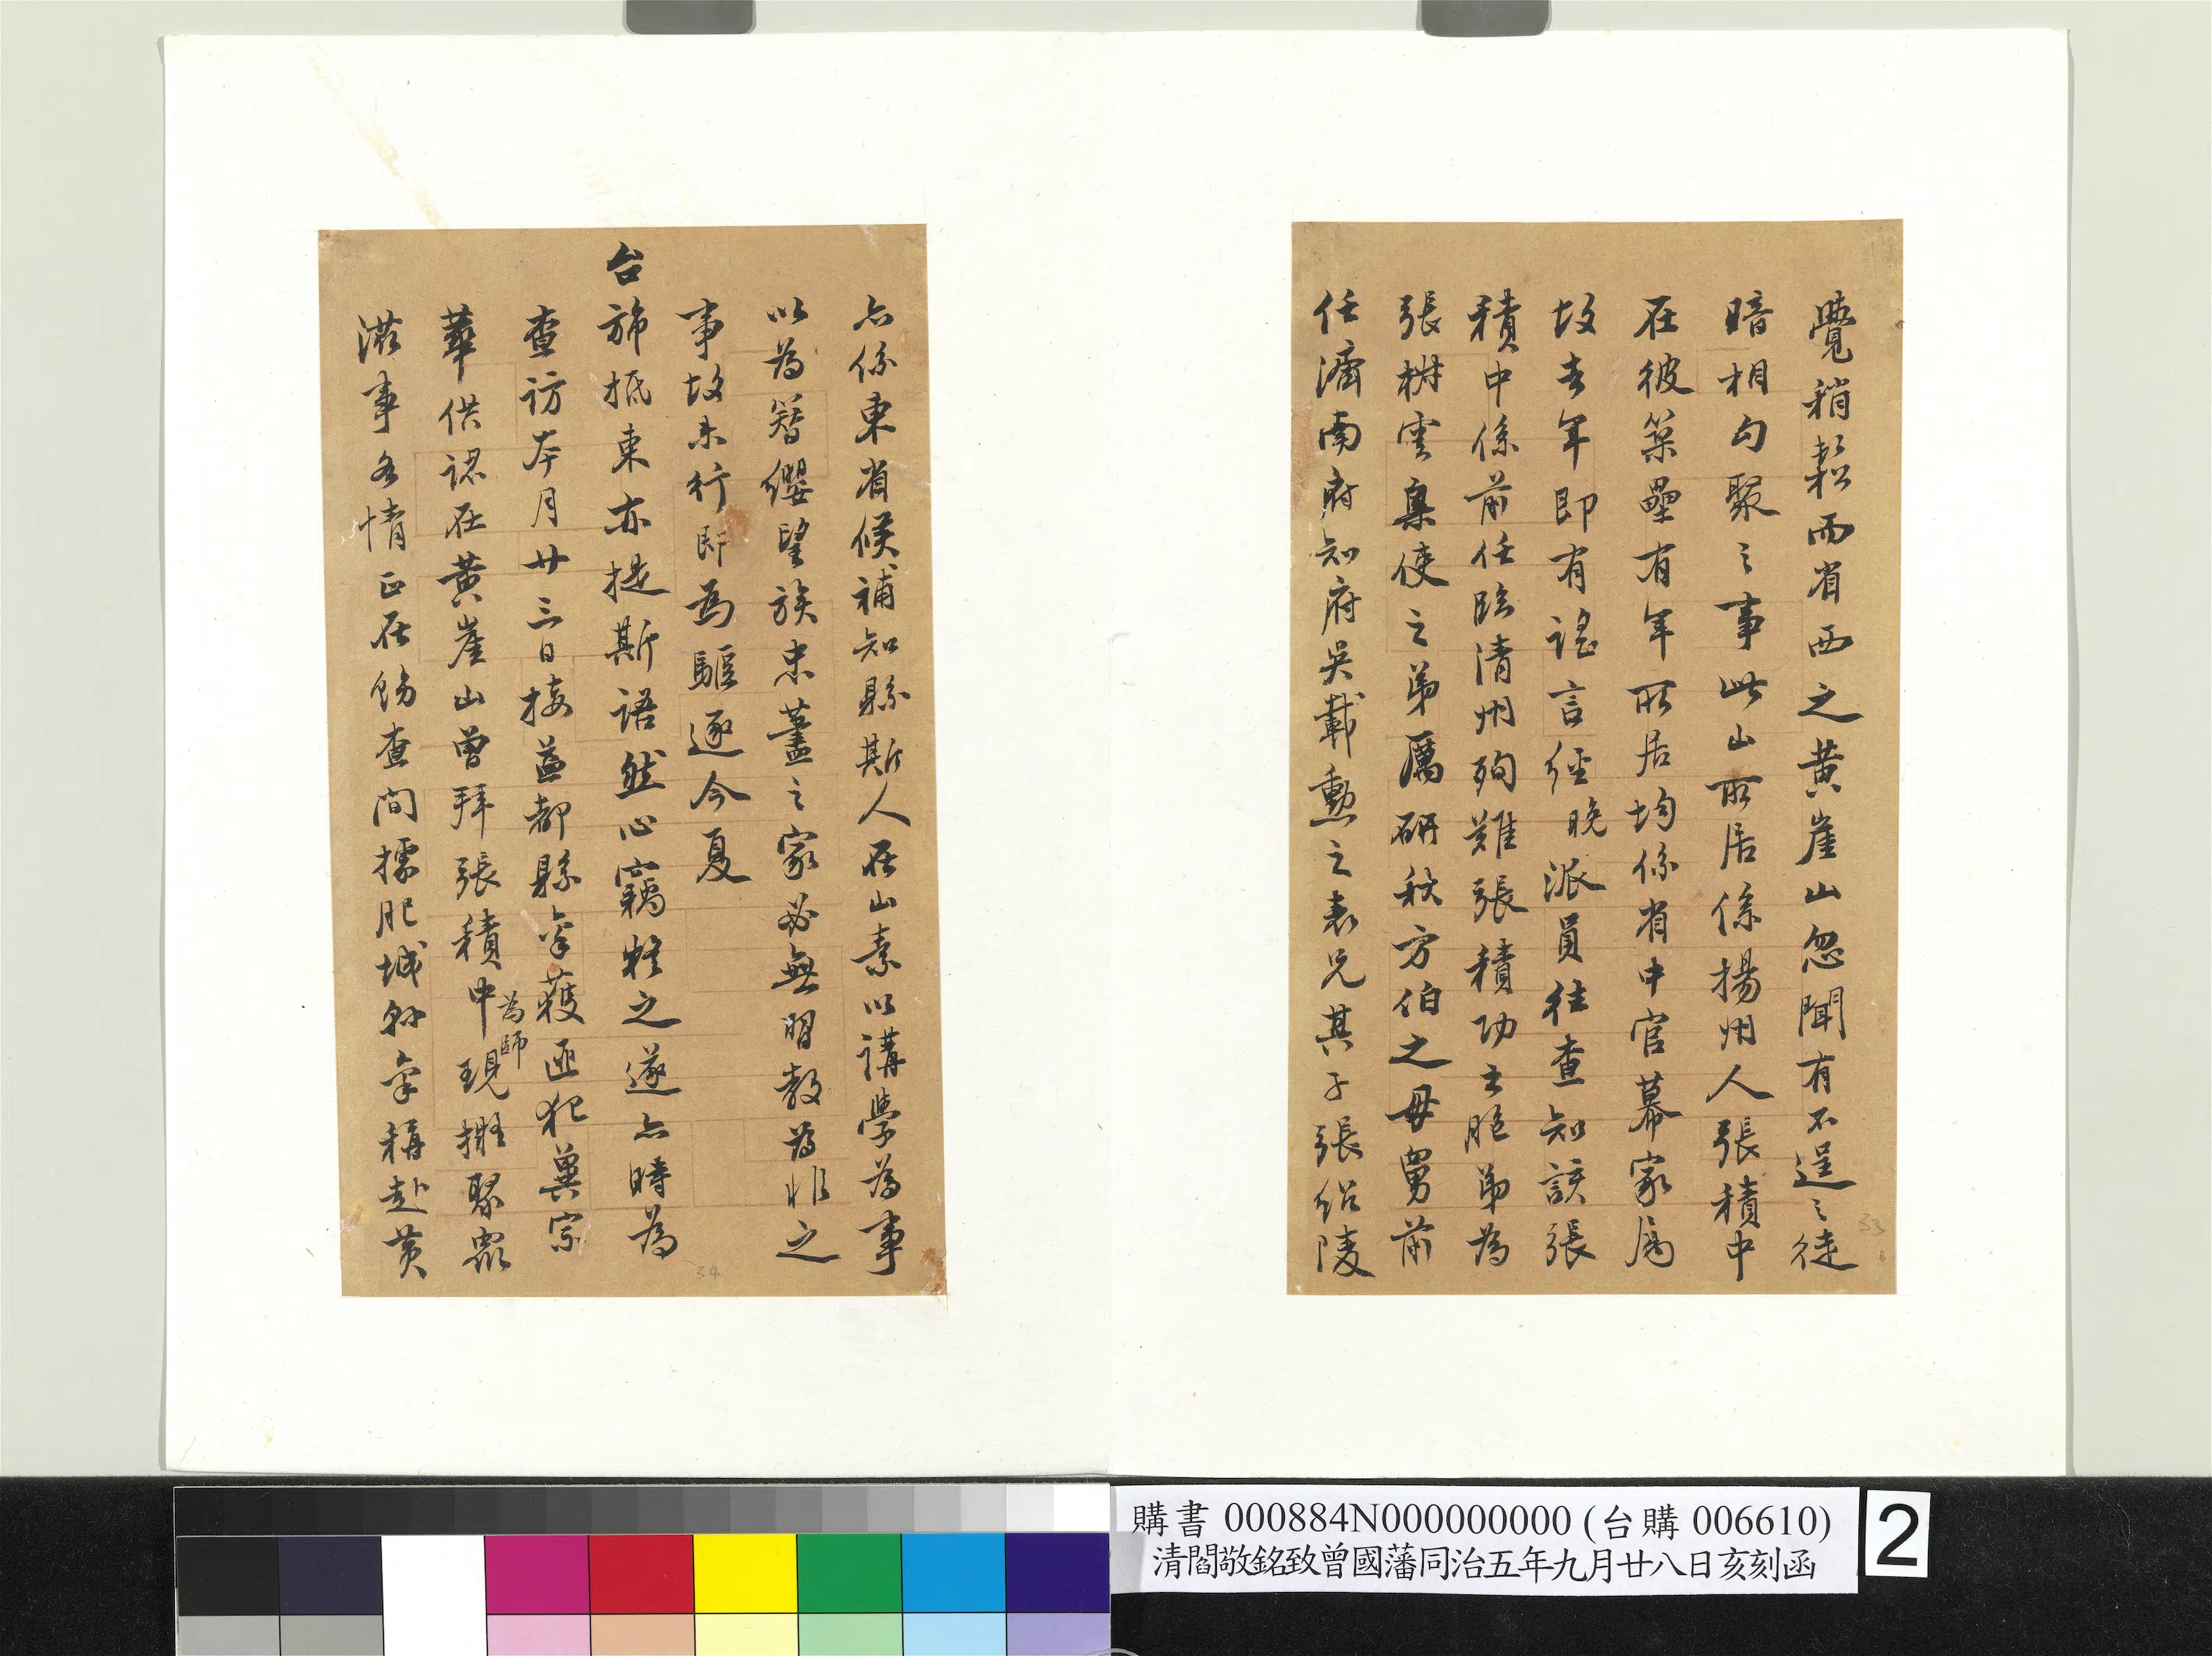 覺稍鬆而省西之黃崖山忽聞有不逞之徒
暗相勾聚之事此山所居係揚州人張積中
在彼築壘有年所居均係省中官幕家屬
故去年即有謠言經晚派員往查知該張
積中係前任臨清州殉難張積功之胞弟為
張樹雲臬使之弟厲研秋方伯之母舅前
任濟南府知府吳載勳之表兄其子張紹陵
亦係東省候補知縣斯人在山素以講學為事
以為簪纓望族忠藎之家必無習教為非之
事故未行即為驅逐今夏
台旆抵東亦提斯語然心竊疑之遂亦時為
查訪本月廿三日接益都縣拿獲匪犯冀宗
華供認在黃崖山曾拜張積中為師現擬聚眾
滋事各情正在飭查間據肥城縣拿稱赴黃
33
34
購書 000884N000000000 (台購 006610)
清閻敬銘致曾國藩同治五年九月廿八日亥刻函
2